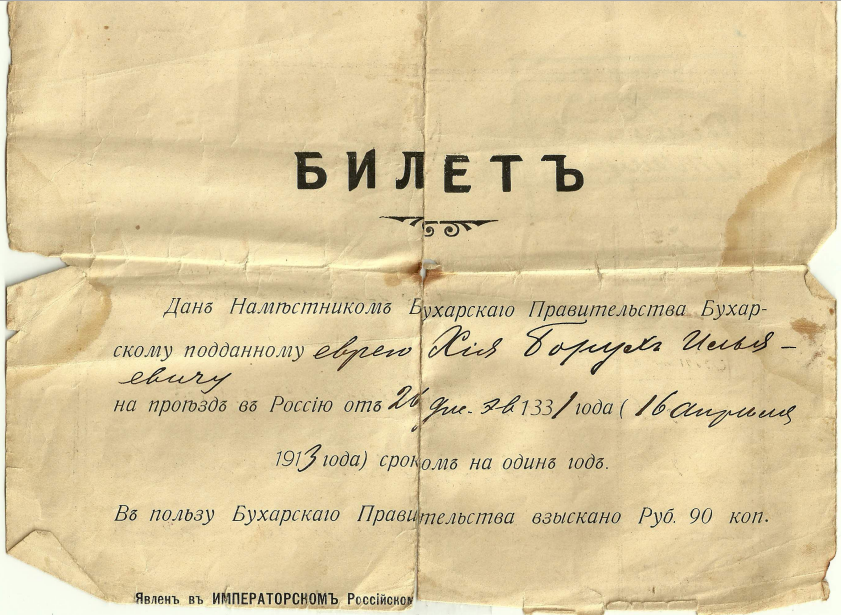 БИЛЕТЪ
Данъ Намѣстникомъ Бухарскаго Правительства Бухар-
скому подданному еврею Хія Борухъ Илья-
евичу
на проѣздъ въ Россію отъ 26 дж. эв 1331 года ( 16 апрѣля
1913 года) срокомъ на одинъ годъ.
Въ пользу Бухарскаго Правительства взыскано Руб. 90 коп.
Явленъ въ ИМПЕРАТОРСКОМЪ Россійском